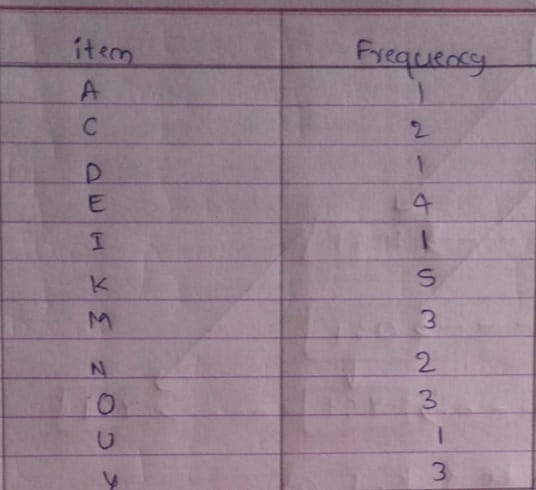 item Frequency
A 1
C 2
D 1
E 4
I 1
K 5
M 3
N 2
O 3
U 1
Y 3